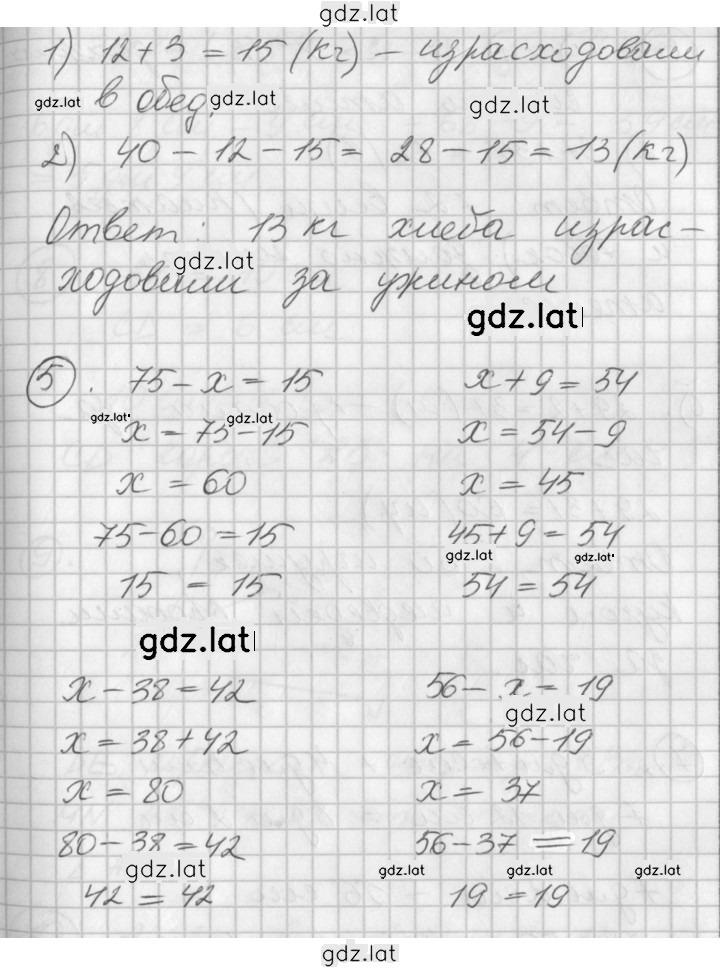 gdz.lat
1) 12 + 3 = 15 (кг) – израсходовали
gdz.lat в обед. gdz.lat gdz.lat
2) 40 – 12 – 15 = 28 – 15 = 13 (кг)
Ответ: 13 кг хлеба израс–
gdz.lat
ходовали за ужином
gdz.lat
5. 75 – x = 15 x + 9 = 54
gdz.lat gdz.lat
x = 75 – 15 x = 54 – 9
x = 60 x = 45
75 – 60 = 15 45 + 9 = 54
gdz.lat gdz.lat
15 = 15 54 = 54
gdz.lat
x – 38 = 42 56 – x = 19
gdz.lat
x = 38 + 42 x = 56 – 19
x = 80 x = 37
80 – 38 = 42 56 – 37 = 19
gdz.lat gdz.lat gdz.lat gdz.lat
42 = 42 19 = 19
gdz.lat